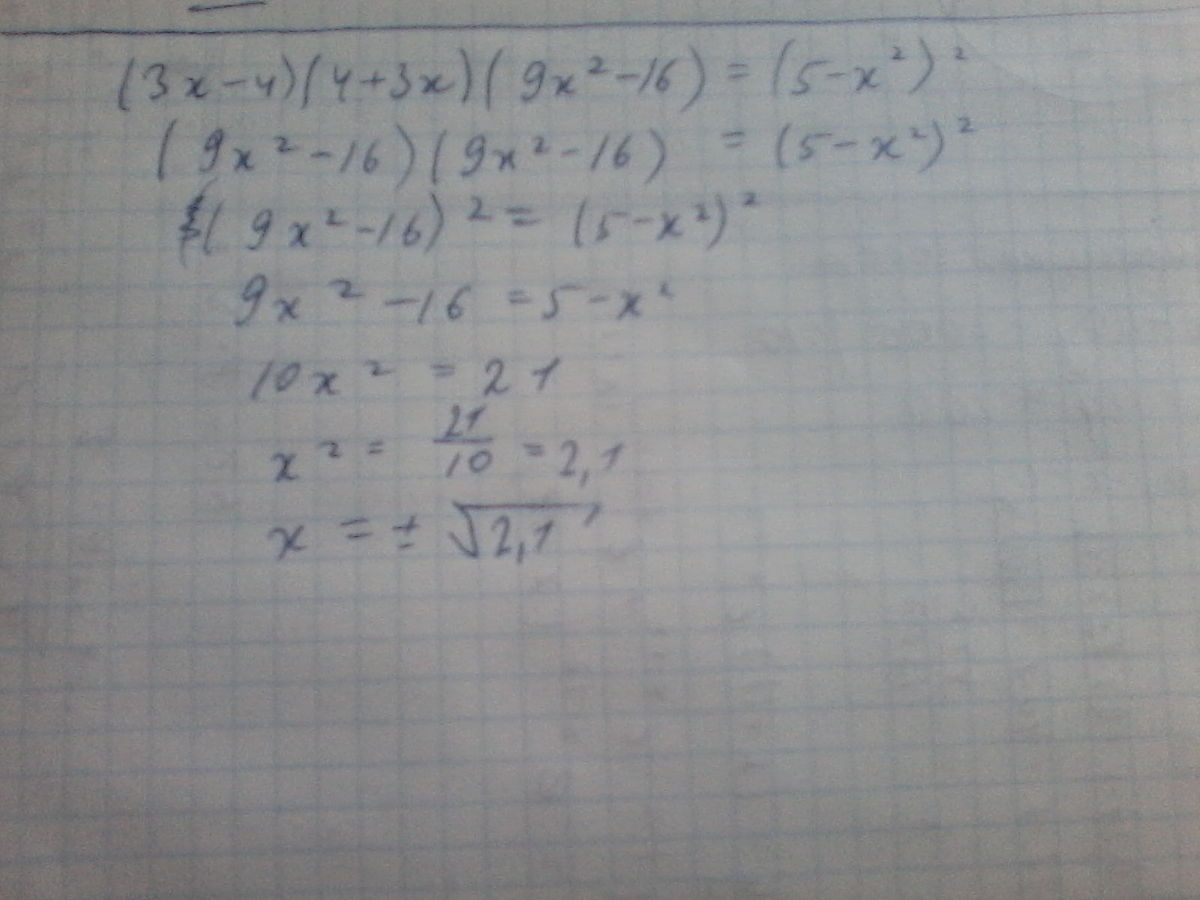 (3x-4)(4+3x)(9x²-16) = (5-x²)²
(9x²-16)(9x²-16) = (5-x²)²
(9x²-16)² = (5-x²)²
9x²-16 = 5-x²
10x² = 21
x² = 21/10 = 2,1
x = ± √2,1